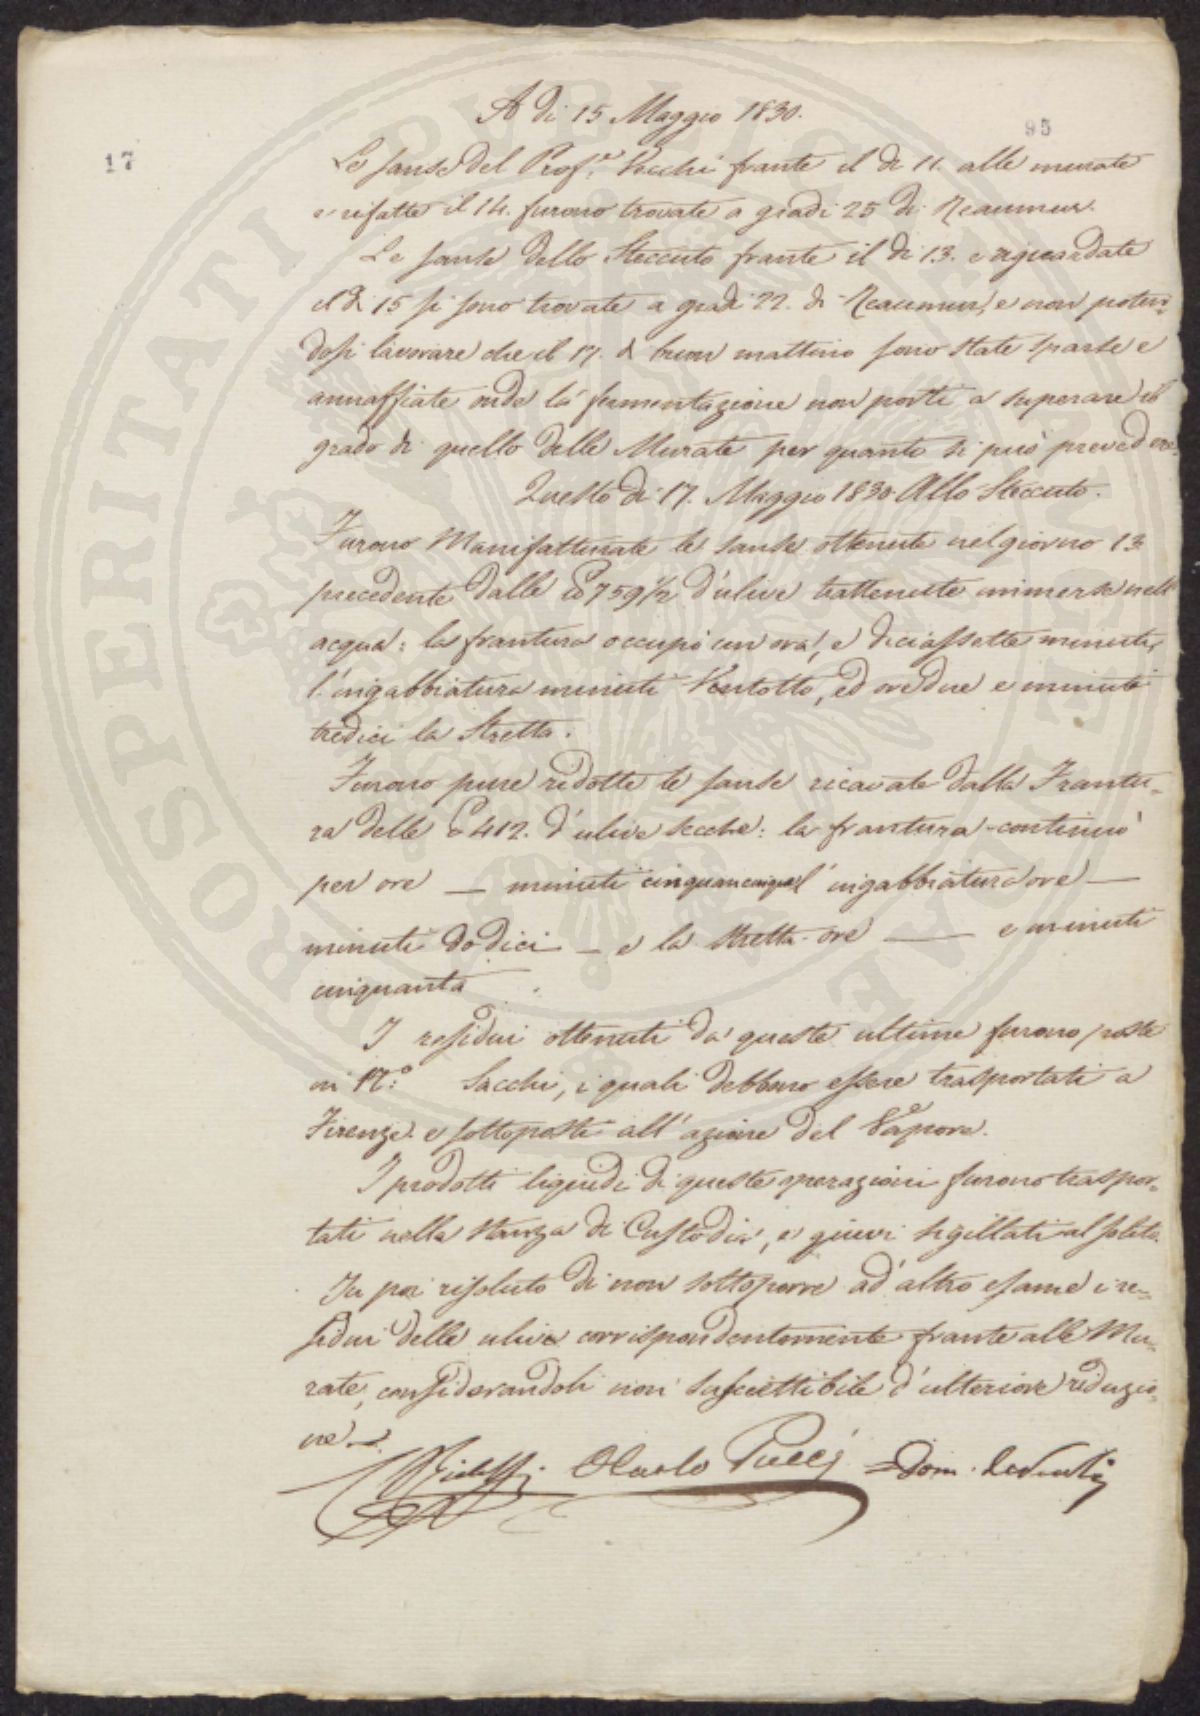 A dì 15 Maggio 1830.
95
17
Le sanse del Prof.e Vecchi frante il dì 11. alle murate
e rifatte il 14. furono trovate a gradi 25 di Reaumur.
Le sanse dello Steccuto frante il dì 13. e riguardate
il dì 15 si sono trovate a gradi 22. di Reaumur, e non poten-
dosi lavorare che il 17. di buon mattino sono state sparse e
annaffiate onde la fermentazione non porti a superare il
grado di quello delle Murate per quanto si può prevedere.
Questo dì 17. Maggio 1830. Allo Steccuto.
Furono Manifatturate le sanse ottenute nel giorno 13
precedente dalle 759 1/2 d'ulive trattenute immerse nell'
acqua: la frantura occupò un ora, e diciassette minuti,
l'ingabbiatura minuti Ventotto, ed ore due e minuti
tredici la Stretta.
Furono pure ridotte le sanse ricavate dalla Frantu-
ra delle 412. d'ulive secche: la frantura continuò
per ore — minuti cinquancinque l'ingabbiatura ore —
minuti dodici — e la stretta ore — e minuti
cinquanta
I residui ottenuti da queste ultime furono poste
in N.o Sacchi, i quali debbono essere trasportati a
Firenze e sottoposti all'azione del Vapore.
I prodotti liquidi di queste operazioni furono traspor-
tati nella stanza di Custodia, e quivi sigillati al solito.
Fu poi risoluto di non sottoporre ad altro esame i re-
sidui delle ulive corrispondentemente frante alle Mu-
rate, considerandoli non suscettibile d'ulteriore riduzio-
ne
Carlo Pucci = Dom.
PROSPERITATI PUBLICAE AUGENDAE